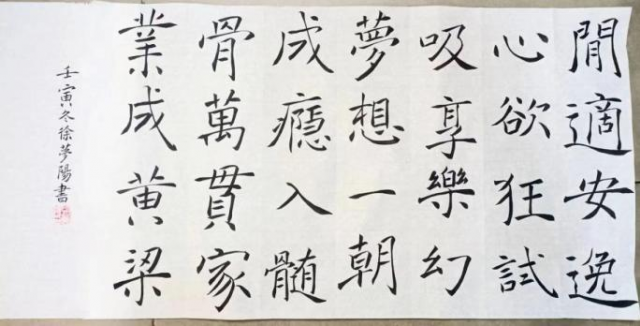 閒適安逸
心欲狂試
吸享樂幻
夢想一朝
成癮入髓
骨萬貫家
業成黄梁
壬寅冬徐夢陽書